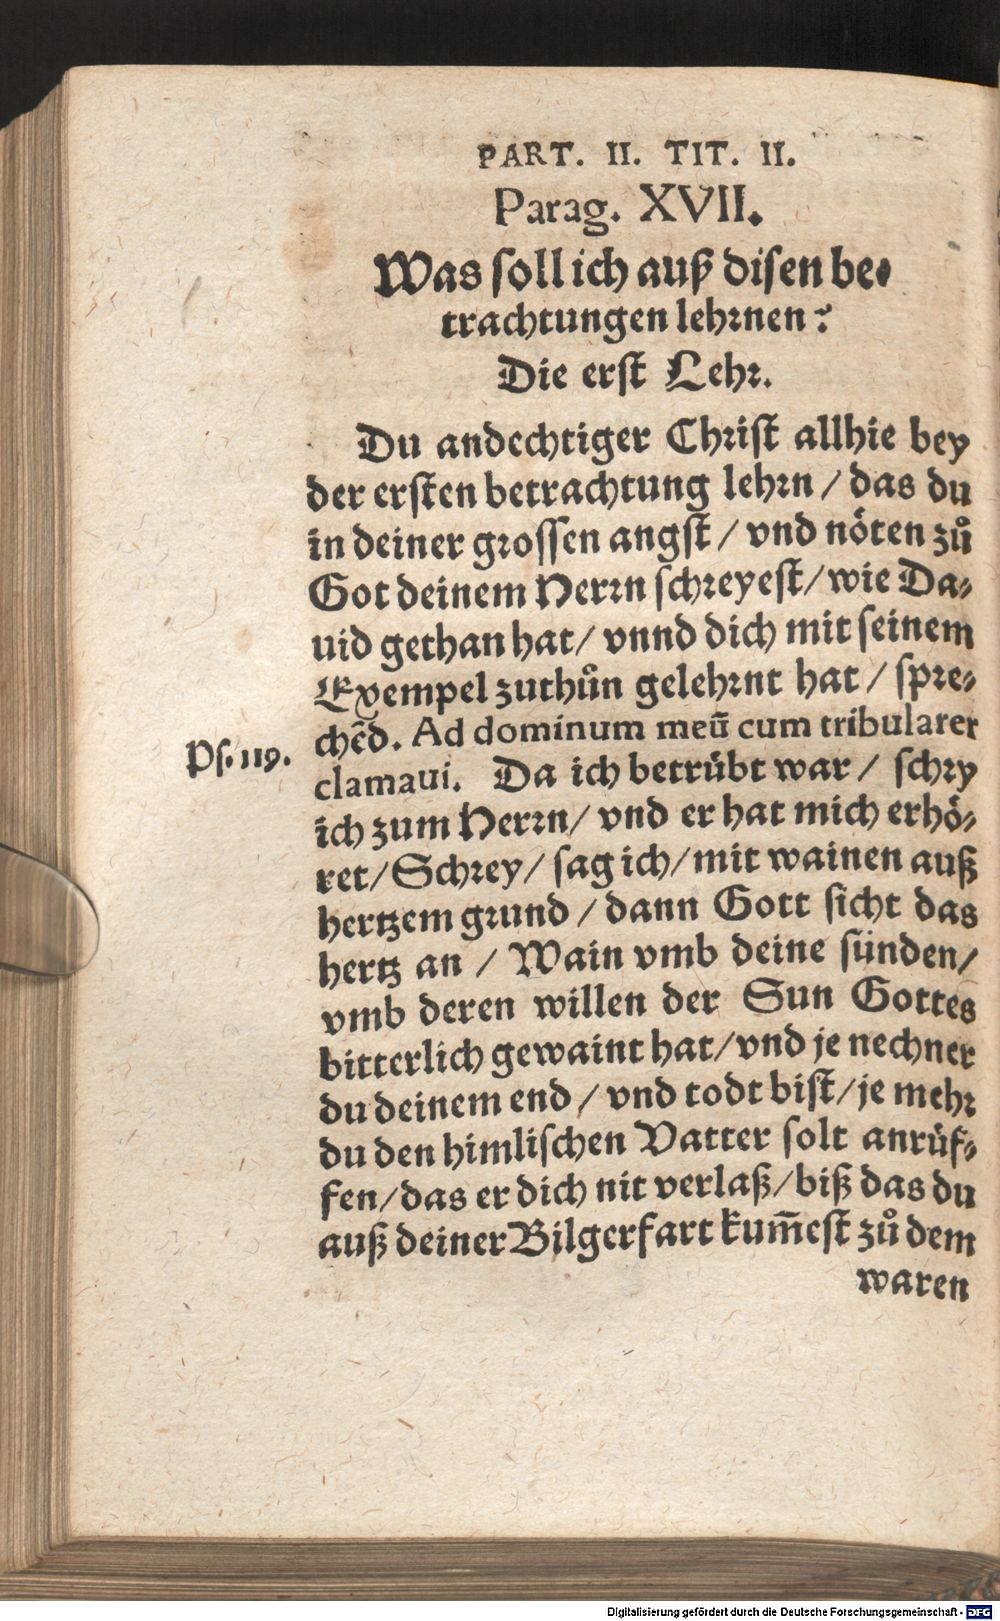 PART. II. TIT. II.
Parag. XVII.
Was soll ich auß disen be⸗
trachtungen lehrnen?
Die erst Lehr.
Du andechtiger Christ allhie bey
der ersten betrachtung lehrn / das du
in deiner grossen angst / vnd nöten zů
Got deinem Herrn schreyest / wie Da⸗
uid gethan hat / vnnd dich mit seinem
Exempel zuthůn gelehrnt hat / spre⸗
chẽd. Ad dominum meũ cum tribularer
Ps. 119.
clamaui. Da ich betrübt war / schry
ich zum Herrn / vnd er hat mich erhö⸗
ret / Schrey / sag ich / mit wainen auß
hertzem grund / dann Gott sicht das
hertz an / Wain vmb deine sünden /
vmb deren willen der Sun Gottes
bitterlich gewaint hat / vnd je nechner
du deinem end / vnd todt bist / je mehr
du den himlischen Vatter solt anrüf⸗
fen / das er dich nit verlaß / biß das du
auß deiner Bilgerfart kum̃est zů dem
waren
Digitalisierung gefördert durch die Deutsche Forschungsgemeinschaft - DFG